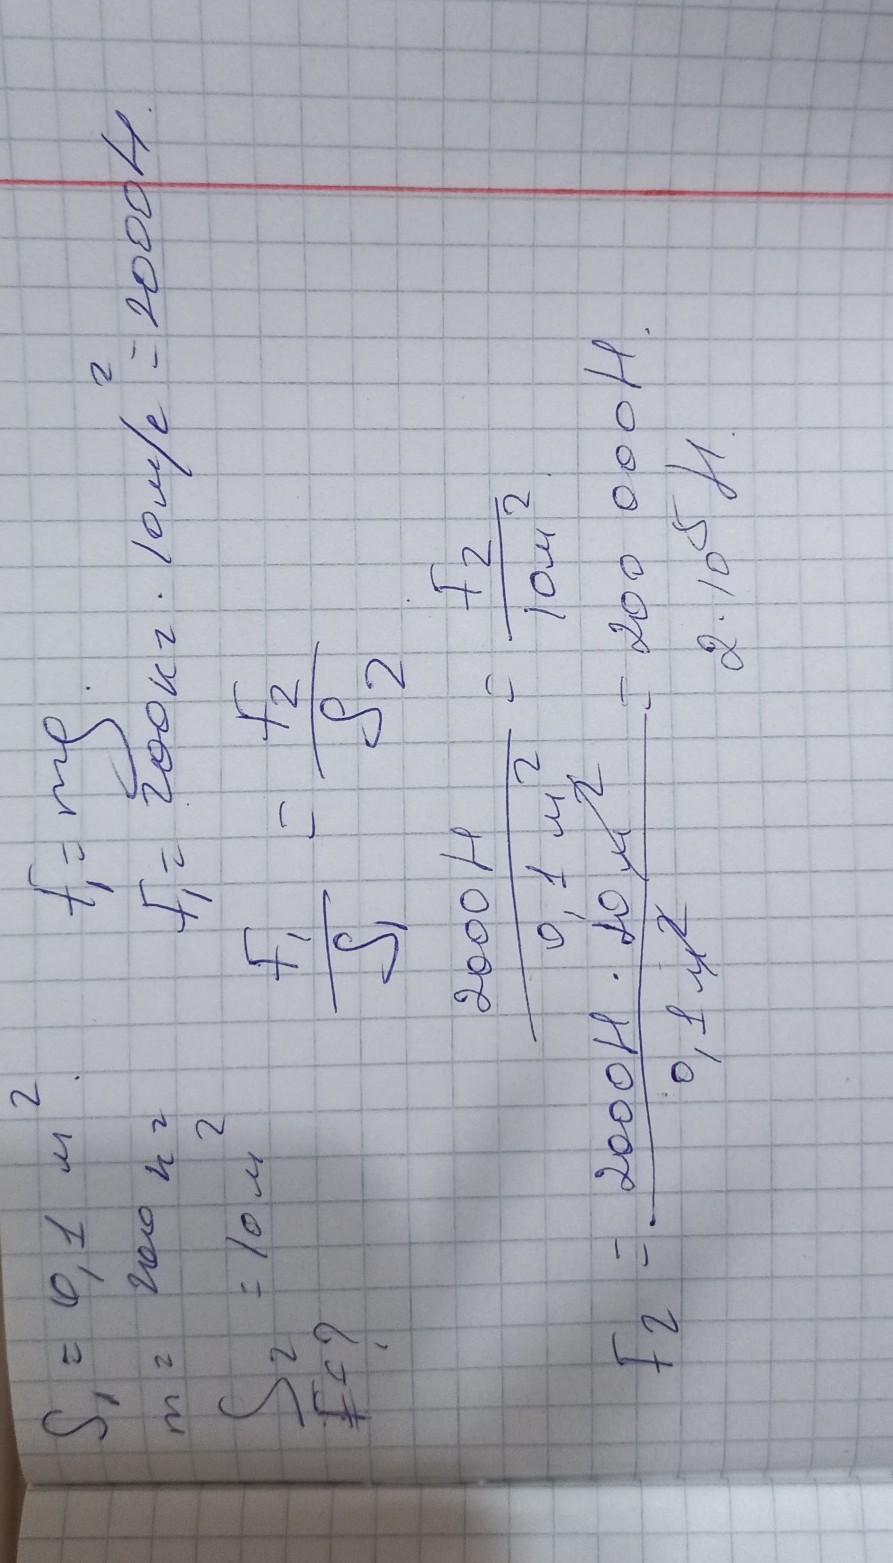 S₁ = 0,1 м².
m = 200 кг
S₂ = 10м²
F = ?
F₁ = mg.
F₁ = 200кг · 10м/с² = 2000Н.
F₁/S₁ = F₂/S₂
2000Н/0,1м² = F₂/10м².
F₂ = 2000Н · 10м²/0,1м² = 200 000Н.
2·10⁵ Н.